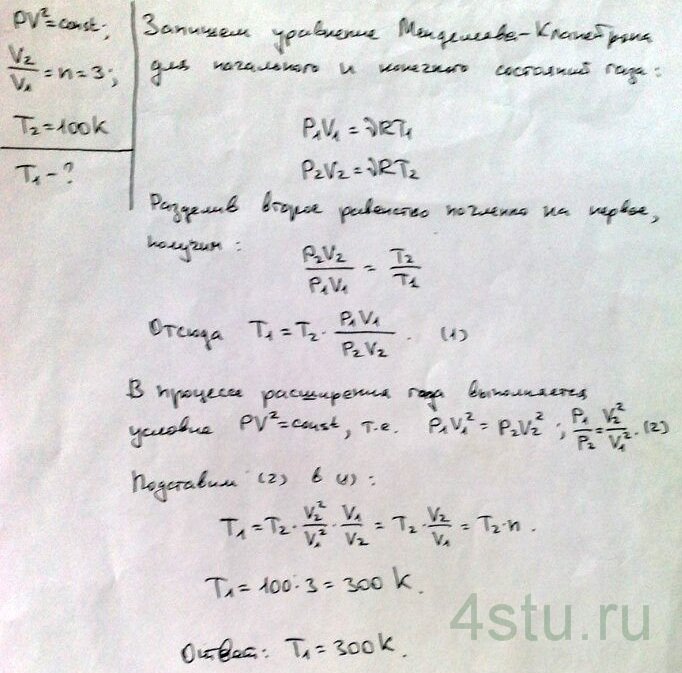 PV²=const;
V₂/V₁=n=3;
T₂=100K
T₁-?
Запишем уравнение Менделеева-Клапейрона
для начального и конечного состояний газа:
P₁V₁=νRT₁
P₂V₂=νRT₂
Разделив второе равенство почленно на первое,
получим:
P₂V₂/P₁V₁ = T₂/T₁
Отсюда T₁=T₂·P₁V₁/P₂V₂. (1)
В процессе расширения газа выполняется
условие PV²=const, т.е. P₁V₁²=P₂V₂²; P₁/P₂=V₂²/V₁². (2)
Подставим (2) в (1):
T₁=T₂·V₂²/V₁²·V₁/V₂=T₂·V₂/V₁=T₂·n.
T₁=100·3=300K.
Ответ: T₁=300K.
4stu.ru